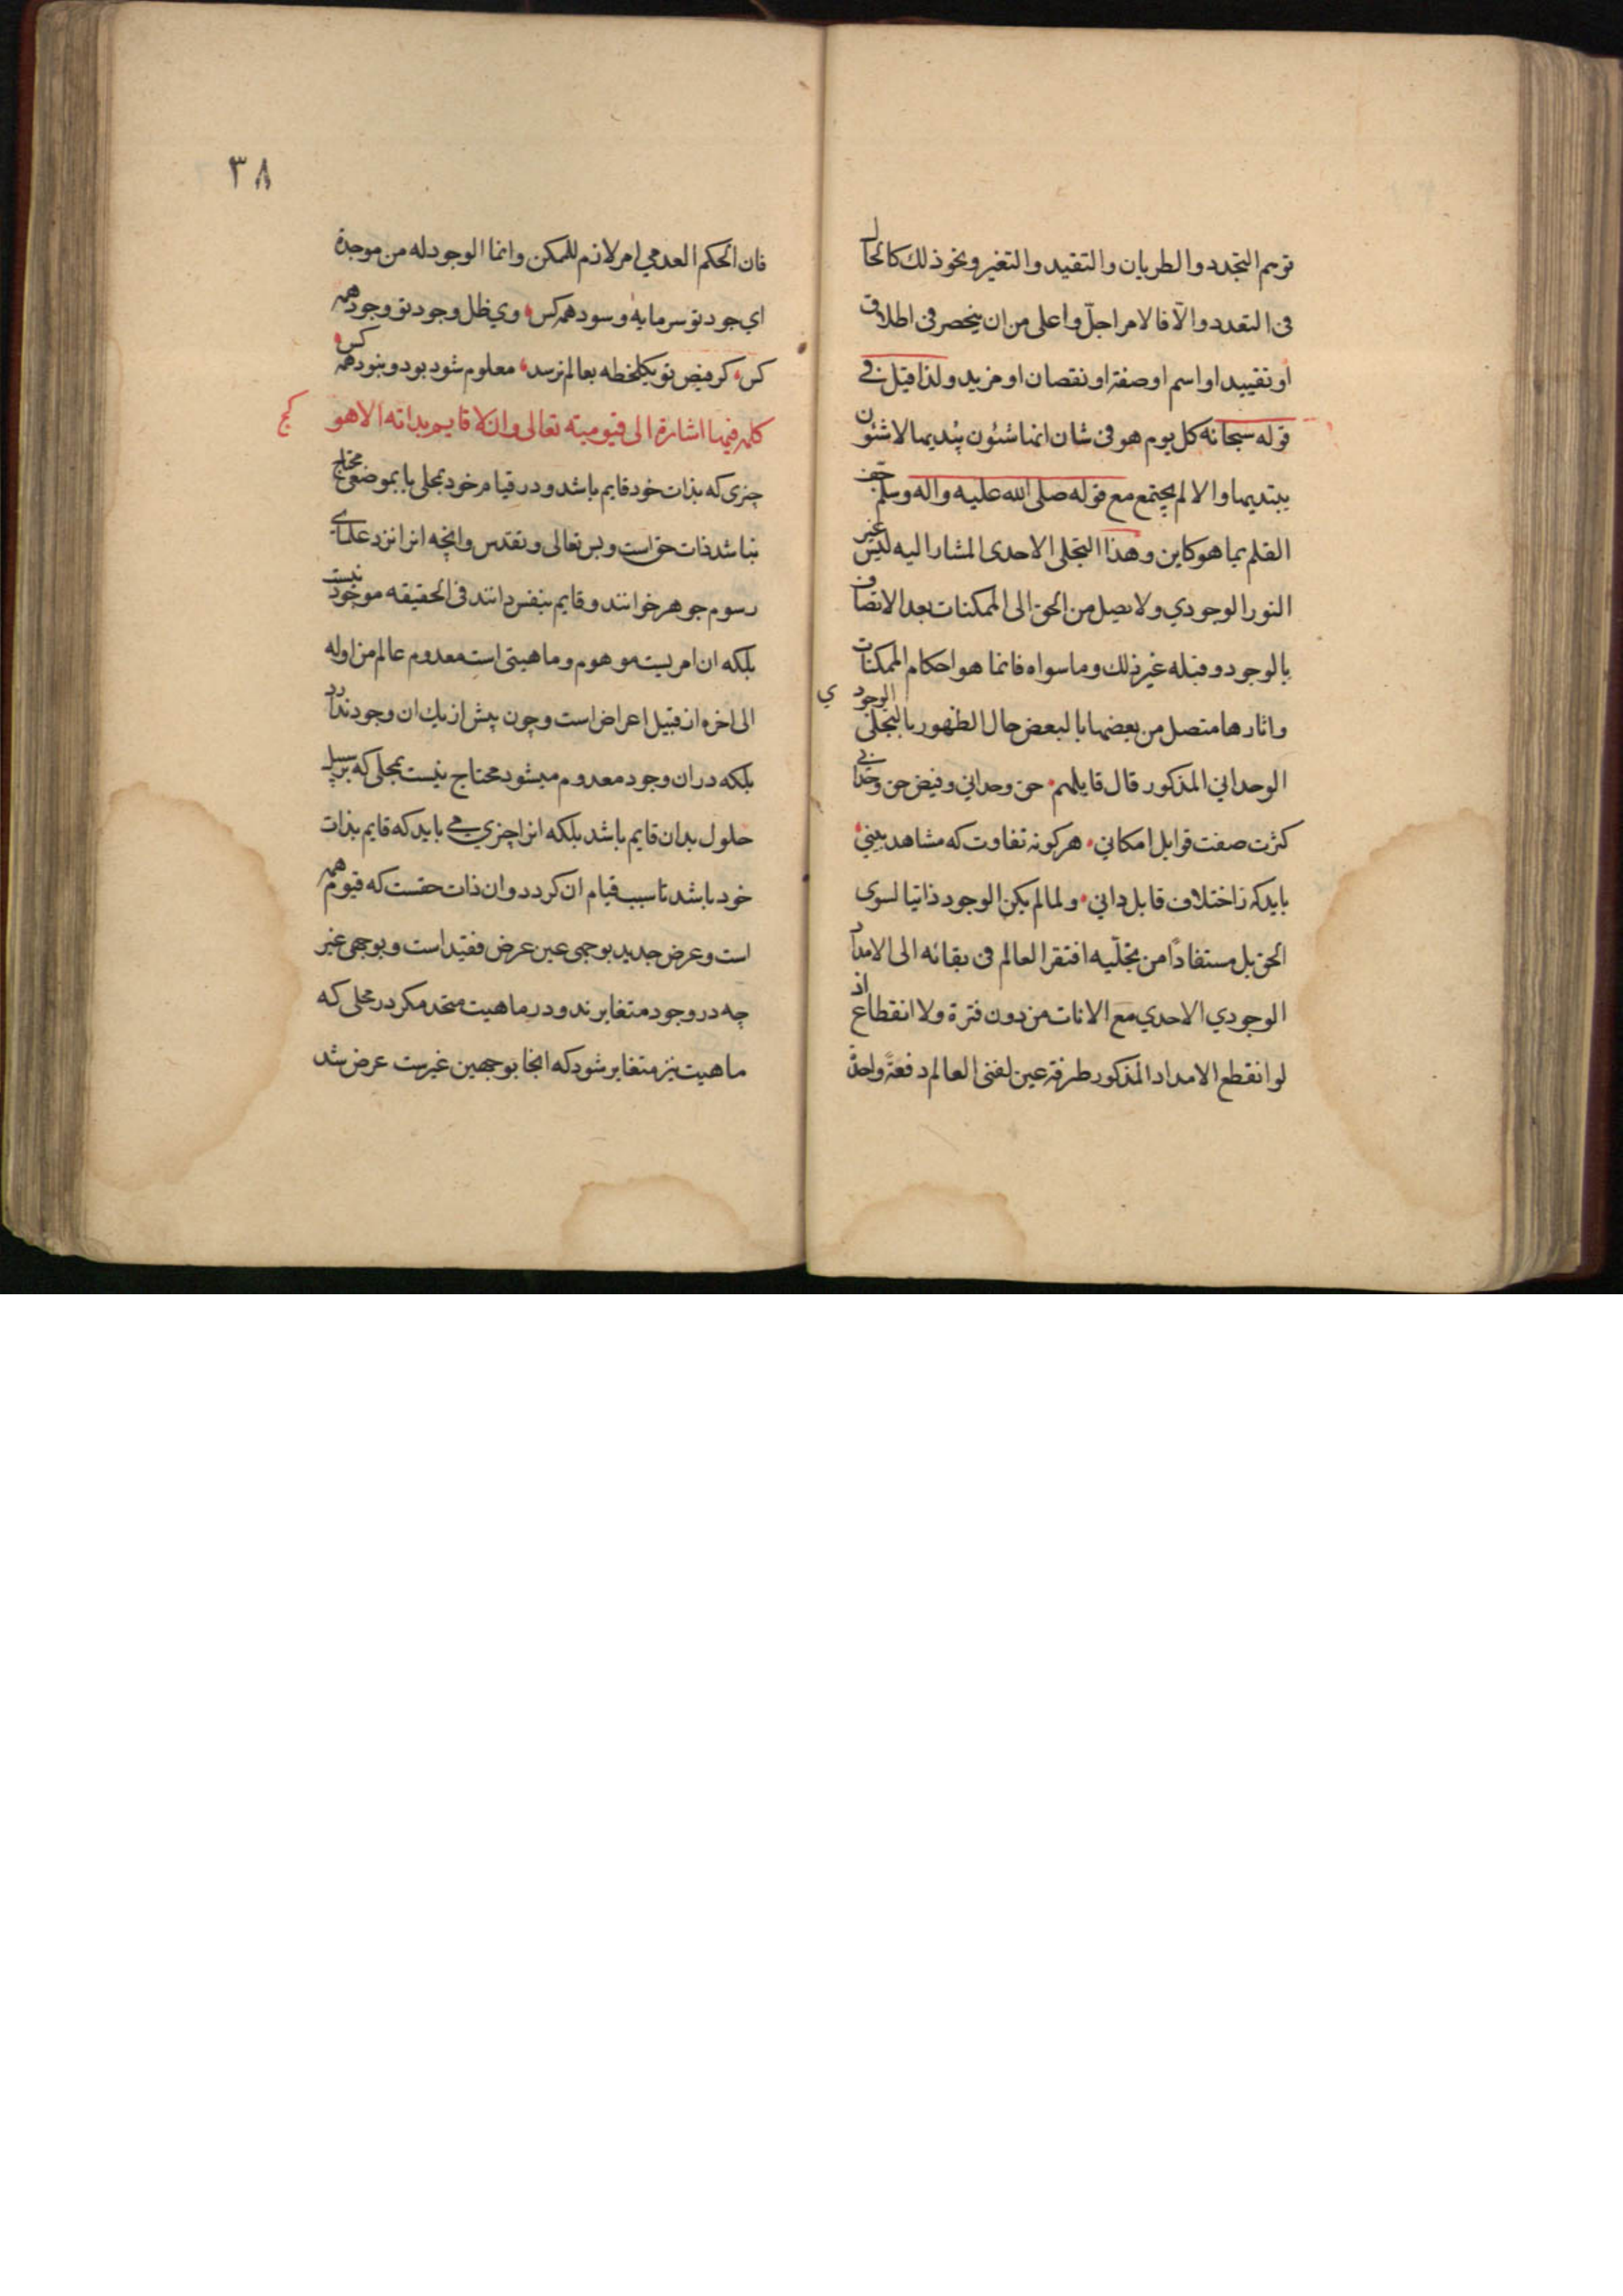 توهم التجدد والطريان والتقيد والتغير ونحو ذلك كالحال
فى التعدد والآفالامر اجلّ واعلى من ان ينحصر فى اطلاق
او تقييد او اسم او صفة او نقصان او مزيد ولذا قيل فے
قوله سبحانه كل يوم هو فى شان انما شئون يبديها لا شئون
يبتديها والا لم يجتمع مع قوله صلى الله عليه واله وسلم جف
القلم بما هو كاين وهذا التجلى الاحدى المشار اليه ليس غير
النور الوجودي ولا يصل من الحق الى الممكنات بعد الاتصاف
بالوجود وقبله غير ذلك وما سواه فانما هو احكام الممكنات
واثارها متصل من بعضها بالبعض حال الظهور بالتجلى الوجودي
الوحداني المذكور قال قايلهم حق وحداني وفيض حق وحدانے
كثرت صفت قوابل امكاني هركونه تفاوت كه مشاهد بيني
بايدكه ز اختلاف قابل داني ولما لم يكن الوجود ذاتيا لسوى
الحق بل مستفادًا من تجلّيه افتقر العالم فى بقائه الى الامداد
الوجودي الاحدي مع الانات من دون فترة ولا انقطاع اذ
لو انقطع الامداد المذكور طرفة عين لفنى العالم دفعةً واحدةً
٣٨
فان الحكم العدمي امر لازم للممكن وانما الوجود له من موجدة
اي جود تو سرمايهٔ و سود همه كس وي ظل وجود تو وجود همه
كس كر فيض تو يكلحظه بعالم نرسد معلوم شود بود و نبود همه كس
كلمه فيها اشارة الى قيوميته تعالى وان لا قايم بذاته الا هو
كج
چيزى كه بذات خود قايم باشد و در قيام خود بمحلى يا بموضوعى محتاج
نباشد ذات حق است و بس تعالى وتقدس وانچه انرا نزد علماى
رسوم جوهر خوانند و قايم بنفس دانند فى الحقيقه موجود نيست
بلكه ان امريست موهوم و ماهيتى است معدوم عالم من اوله
الى اخره از قبيل اعراض است و چون پيش از يك ان وجود ندارد
بلكه در ان وجود معدوم ميشود محتاج نيست بمحلى كه برسبيل
حلول بدان قايم باشد بلكه انرا چيزي مے بايد كه قايم بذات
خود باشد تا سبب قيام ان كردد و ان ذات حقست كه قيوم همه
است و عرض جديد بوجهى عين عرض فقيد است و بوجهى غير
چه در وجود متغايرند و در ماهيت متحد مكر در محلى كه
ماهيت نيز متغاير شود كه انجا بوجهين غيرست عرض شد